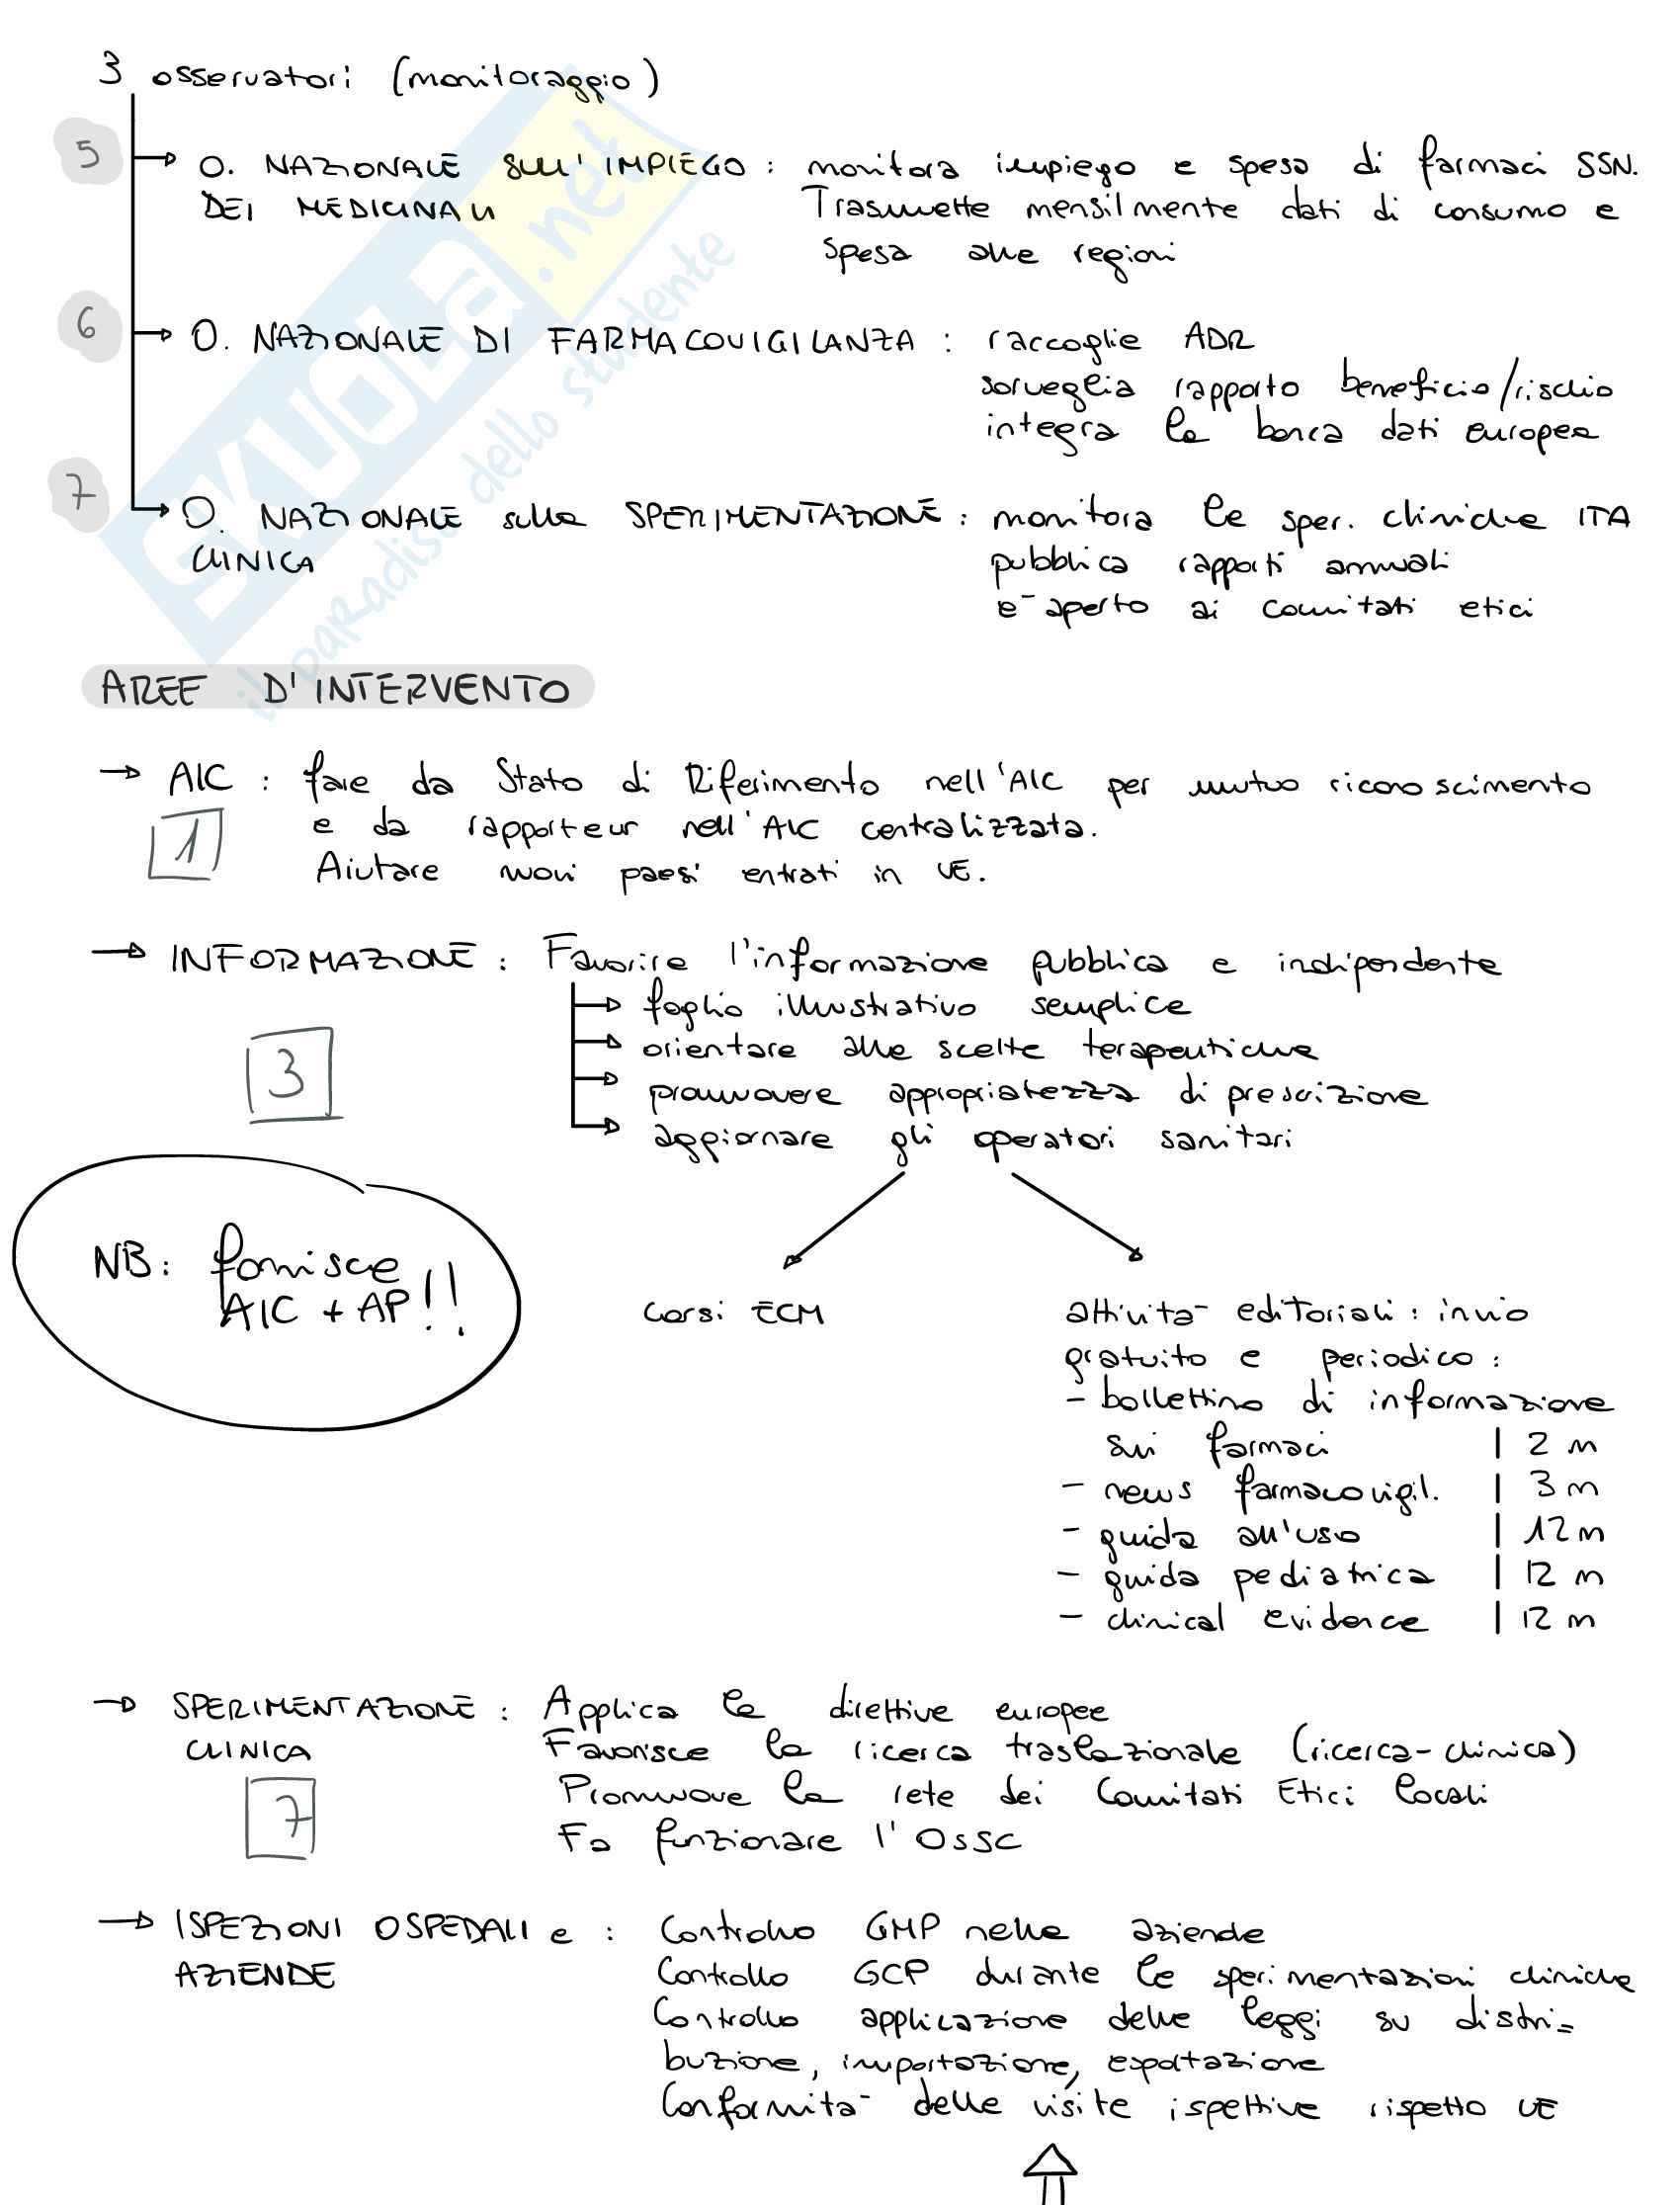 3 osservatori (monitoraggio)
5
O. NAZIONALE SULL'IMPIEGO : monitora impiego e spesa di farmaci SSN.
DEI MEDICINALI Trasmette mensilmente dati di consumo e
spesa alle regioni
6
O. NAZIONALE DI FARMACOVIGILANZA : raccoglie ADR
sorveglia rapporto beneficio/rischio
integra la banca dati europea
7
O. NAZIONALE sulla SPERIMENTAZIONE : monitora le sper. cliniche ITA
CLINICA pubblica rapporti annuali
e' aperto ai comitati etici
SKUOLA.net
il paradiso dello studente
AREE D'INTERVENTO
→ AIC : fare da Stato di Riferimento nell'AIC per mutuo riconoscimento
1 e da rapporteur nell'AIC centralizzata.
Aiutare nuovi paesi entrati in UE.
→ INFORMAZIONE : Favorire l'informazione pubblica e indipendente
→ foglio illustrativo semplice
→ orientare alle scelte terapeutiche
3
→ promuovere appropriatezza di prescrizione
→ aggiornare gli operatori sanitari
NB: fornisce
AIC + AP!!
corsi ECM
attivita' editoriali : invio
gratuito e periodico :
- bollettino di informazione
sui farmaci | 2 m
- news farmacovigil. | 3 m
- guida all'uso | 12 m
- guida pediatrica | 12 m
- clinical evidence | 12 m
→ SPERIMENTAZIONE : Applica le direttive europee
CLINICA Favorisce la ricerca traslazionale (ricerca-clinica)
7 Promuove la rete dei Comitati Etici locali
Fa funzionare l'OSSC
→ ISPEZIONI OSPEDALI e : Controllo GMP nelle aziende
AZIENDE Controllo GCP durante le sperimentazioni cliniche
Controllo applicazione delle leggi su distri=
buzione, importazione, esportazione
Conformita' delle visite ispettive rispetto UE